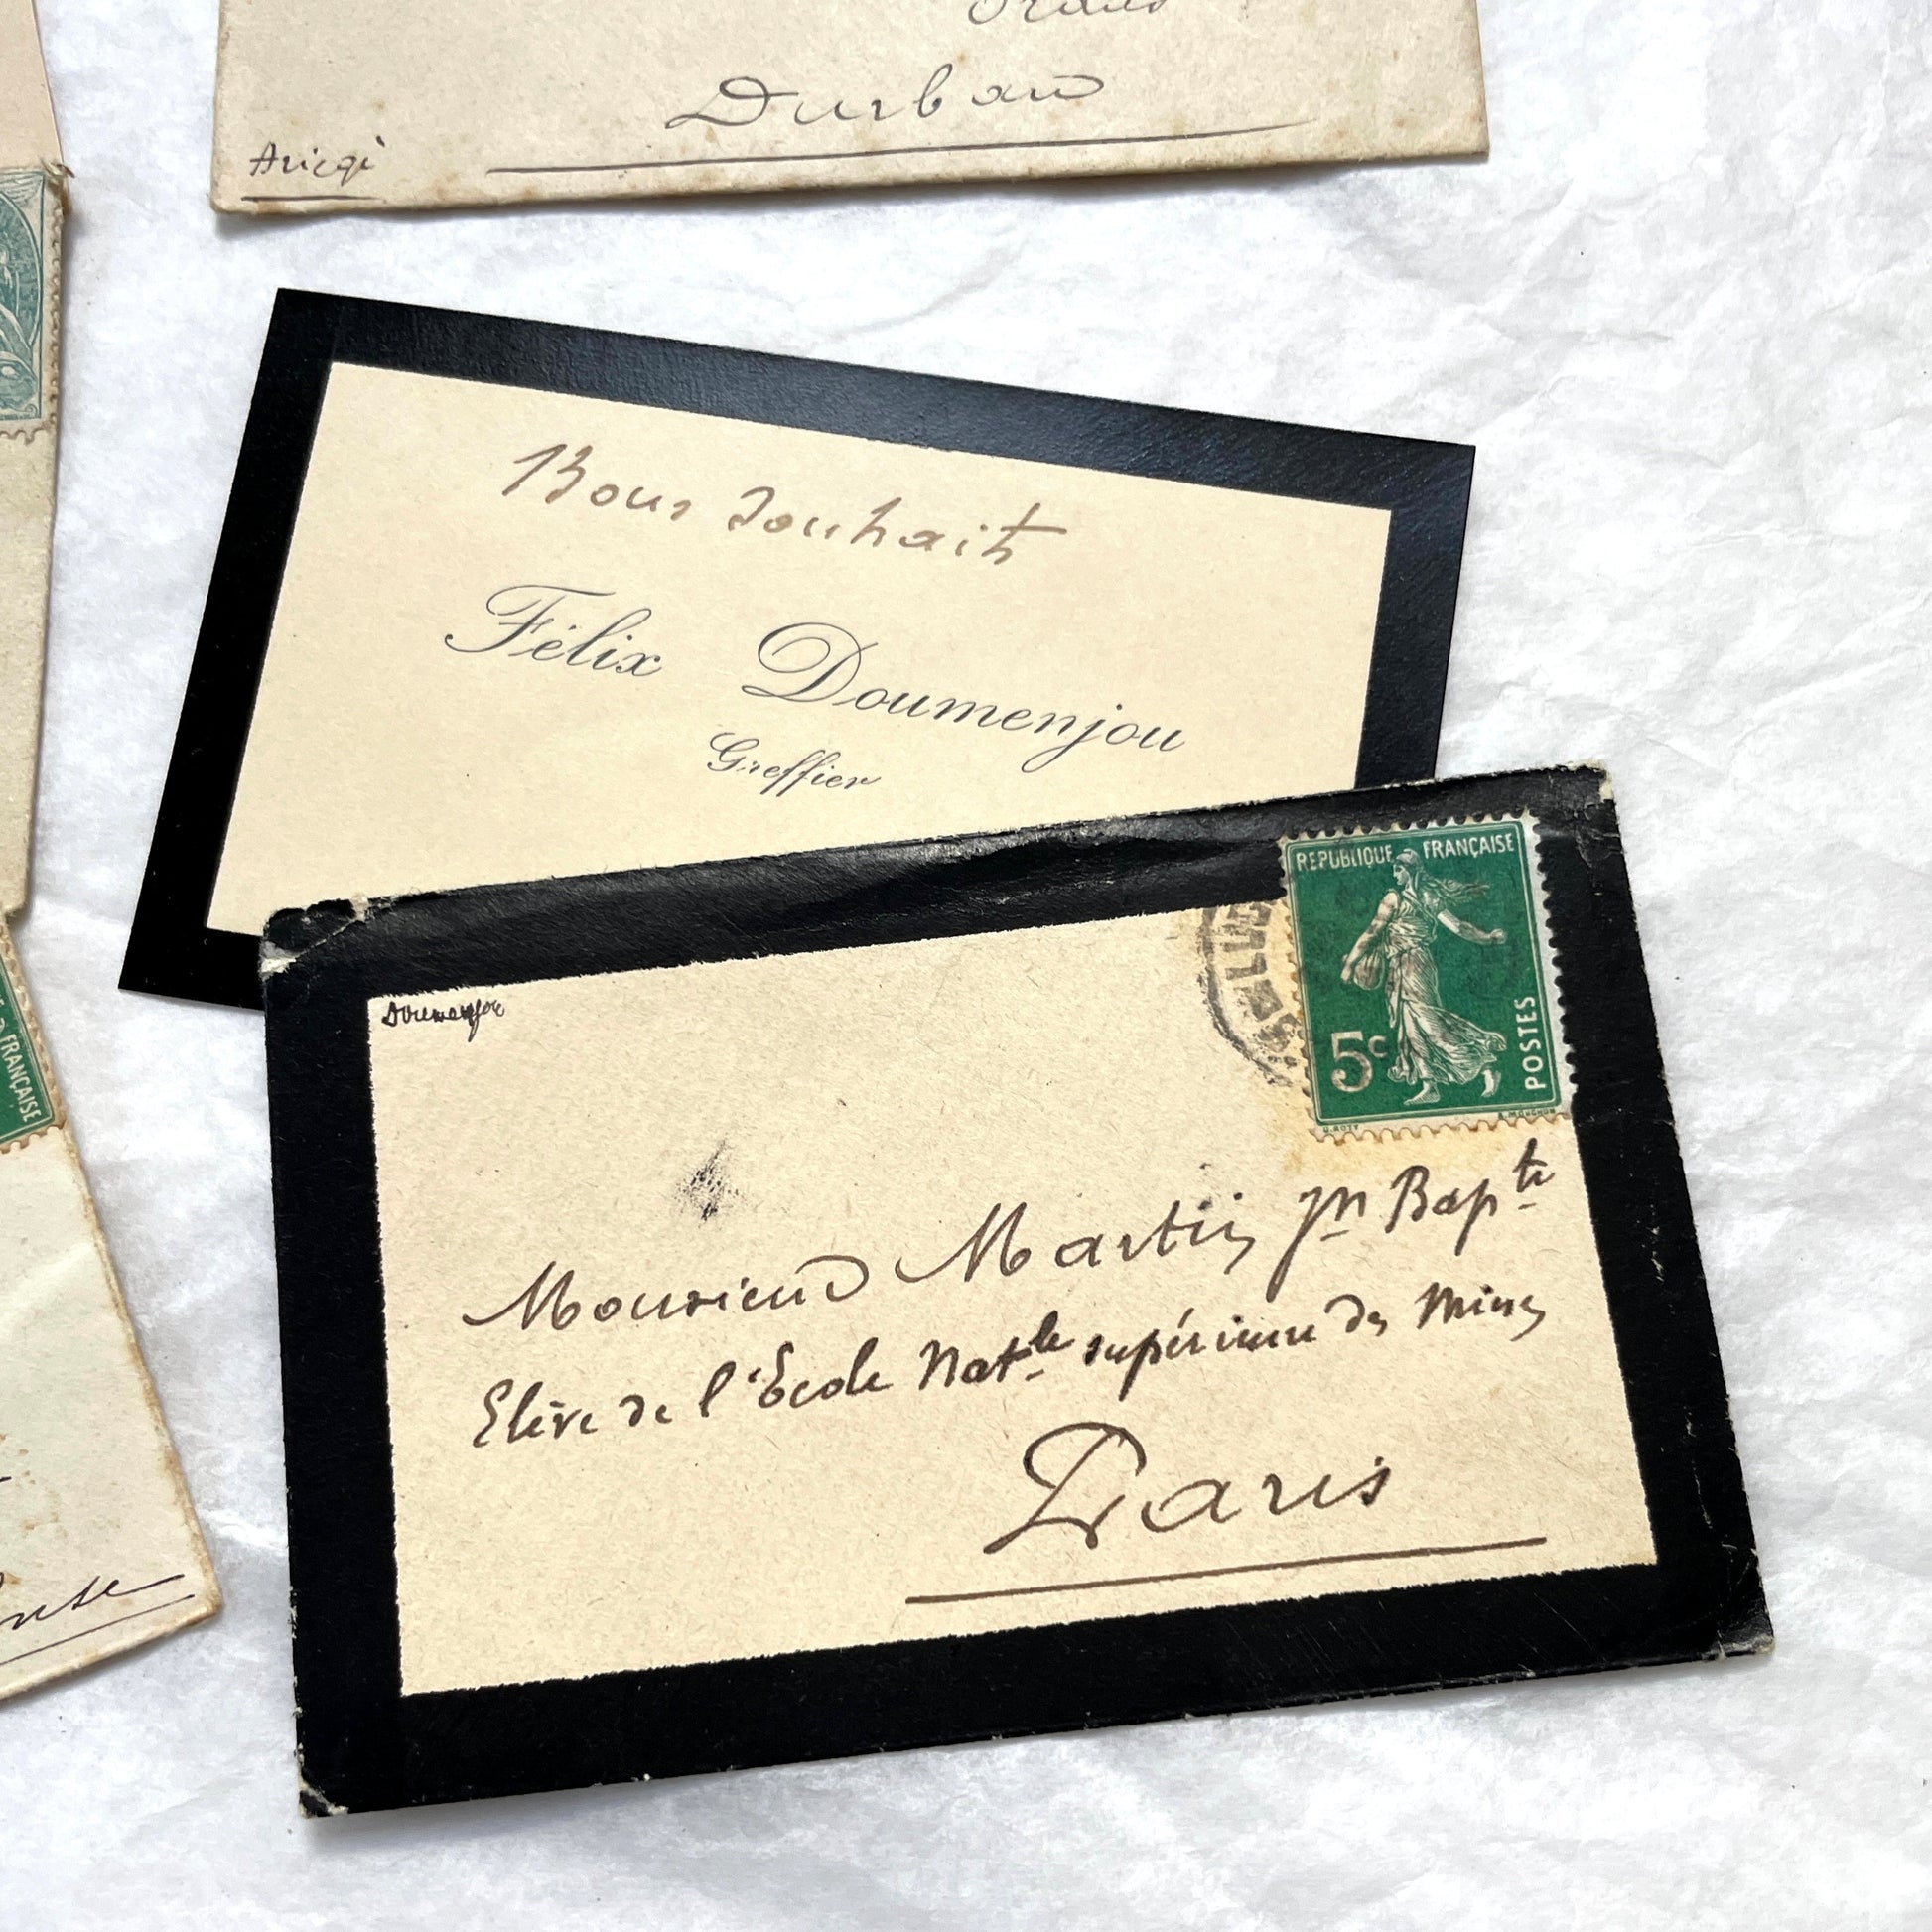 Durban
Ariège
Vous souhait
Félix Doumenjou
Greffier
Doumenjou
REPUBLIQUE FRANÇAISE
5c
POSTES
O. ROTY
A. MOUCHON
Monsieur Martin Jn Bapte
Elève de l'Ecole Natle supérieure des Mines
Paris
FRANÇAISE